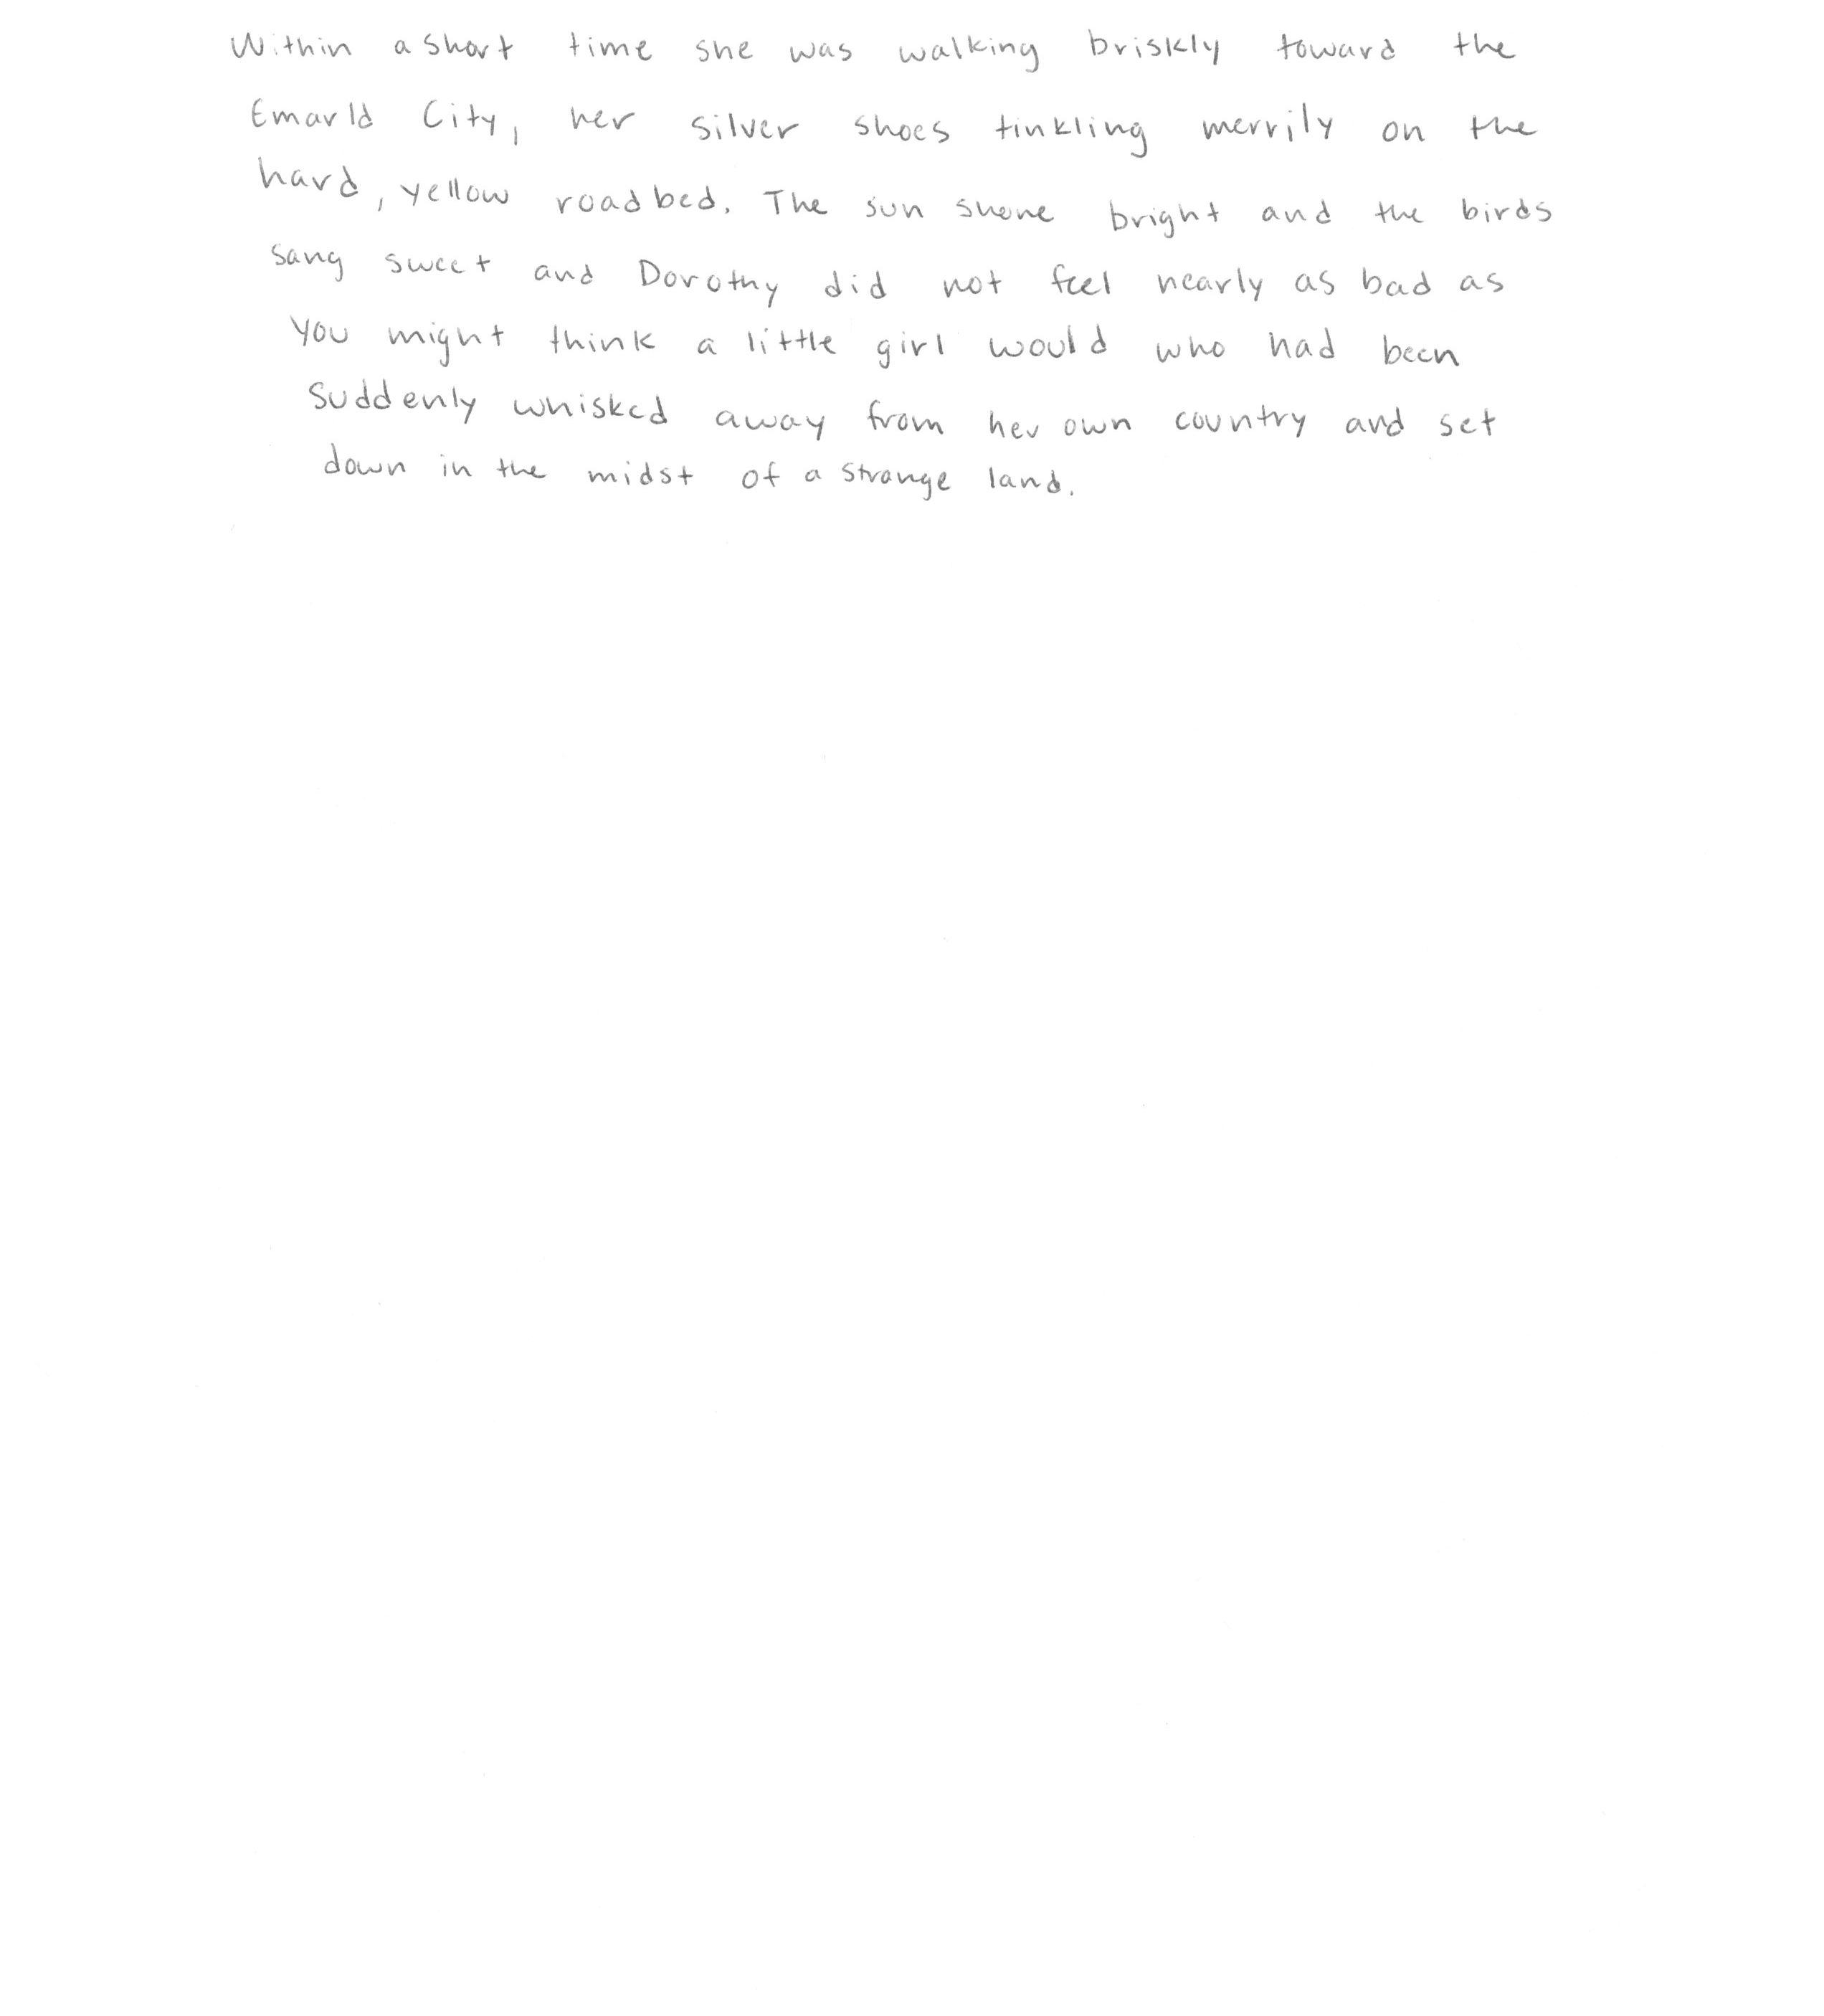 Within a short time she was walking briskly toward the
Emarld City, her silver shoes tinkling merrily on the
hard, yellow roadbed. The sun shone bright and the birds
sang sweet and Dorothy did not feel nearly as bad as
you might think a little girl would who had been
suddenly whisked away from her own country and set
down in the midst of a strange land.